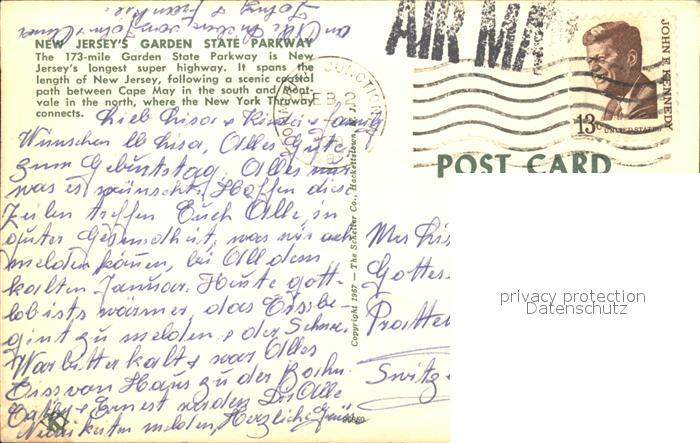 AIR MA
JOHN F. KENNEDY
13c
UNITED STATES
NEW JERSEY'S GARDEN STATE PARKWAY
The 173-mile Garden State Parkway is New
Jersey's longest super highway. It spans the
length of New Jersey, following a scenic coastal
path between Cape May in the south and Mont-
vale in the north, where the New York Thruway
connects.
JUNCTION
FEB 2
POST CARD
Copyright 1967 — The Scheller Co., Hackettstown, N.J.
Lieb Lisa + Kinder + family
Wünschen lb Lisa, Alles Gute
zum Geburtstag, Alles
was es wünscht. Hoffen diese
Zeilen treffen Euch Alle, in
guter Gesundheit, was wir auch
melden können, bei All dem
kalten Januar. Heute gott-
lob ists wärmer, das Eis be-
gint zu melden + der Schnee.
War bitter kalt + war Alles
Eiss von Haus zu der
+ Ernest werden Dir Alle
Neuikeiten melden, Herzliche Grüsse
Mrs Lis
Gottes
Pratte
Switz
privacy protection
Datenschutz